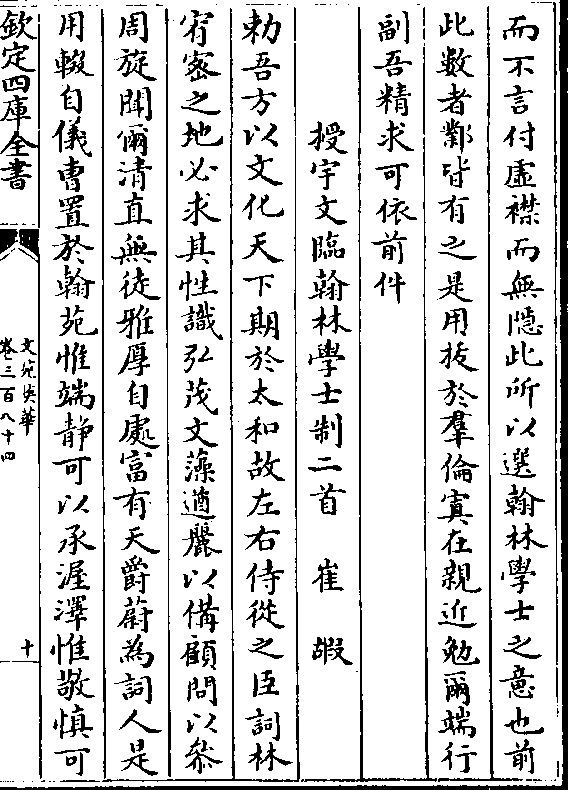 而不言付虛襟而無隱此所以選翰林學士之意也前
此數者鄴皆有之是用拔於羣倫寘在親近勉爾端行
副吾精求可依前件
授宇文臨翰林學士制二首　崔嘏
勅吾方以文化天下期於太和故左右侍從之臣詞林
宥密之地必求其性識弘茂文藻遒麗以備顧問以叅
周旋聞爾清直無徒雅厚自處富有天爵蔚為詞人是
用輟自儀曹置於翰苑惟端静可以承渥澤惟敬慎可
欽定四庫全書
文苑英華
卷三百八十四
十